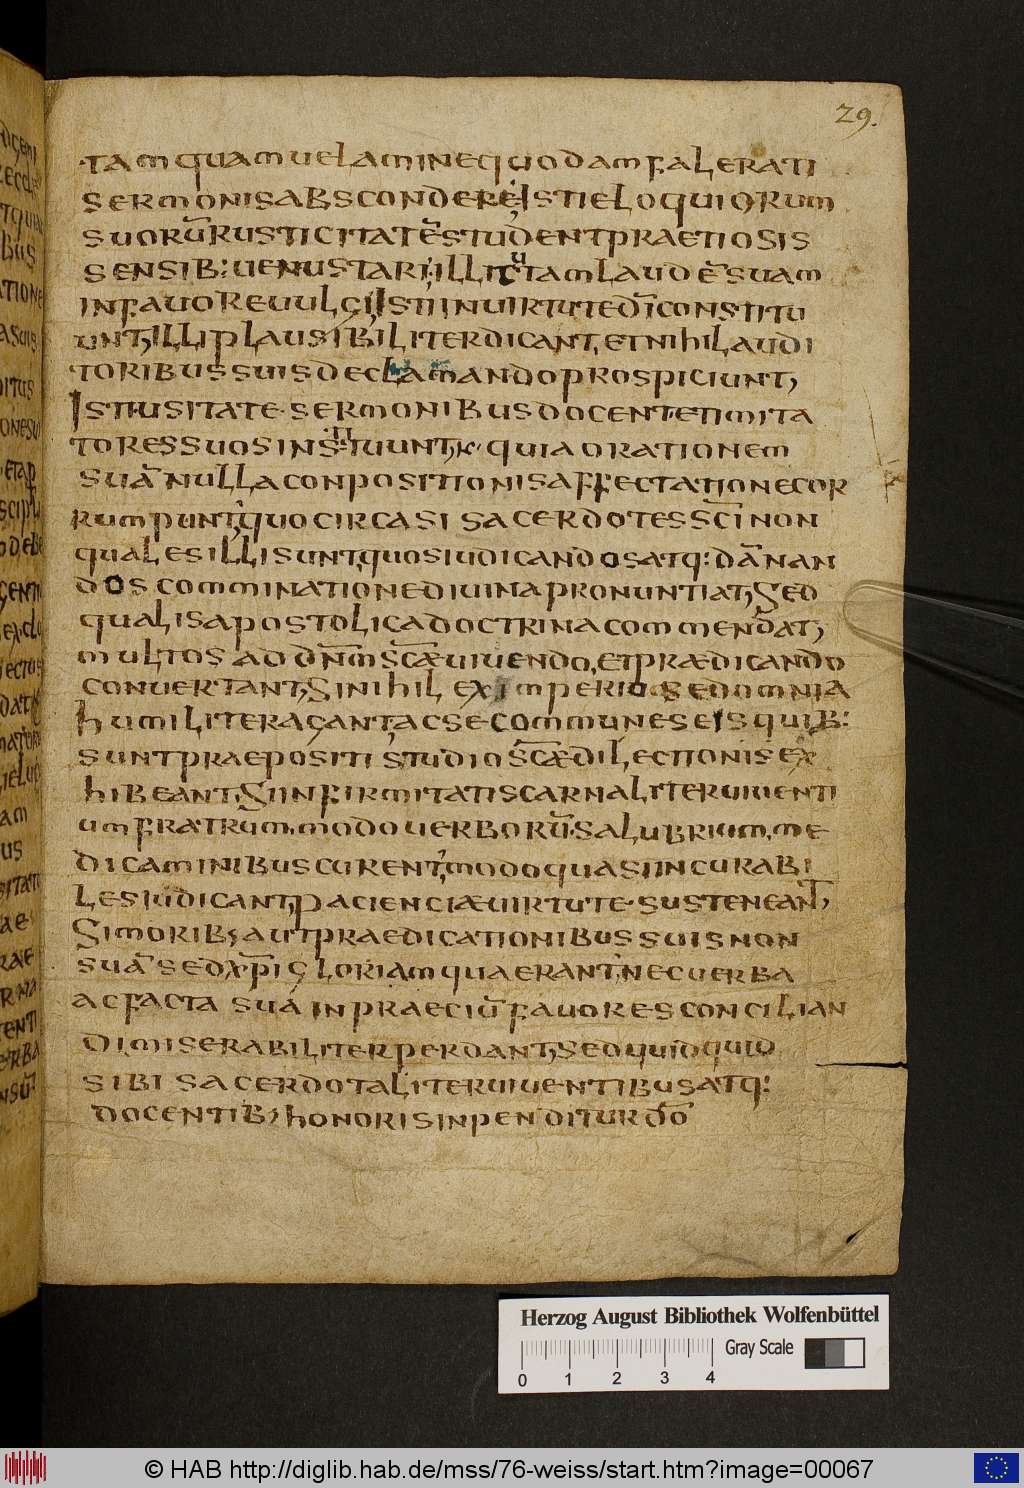 29.
tamquam uelamine quodam falerati
sermonis abscondere. Isti eloquiorum
suorū rusticitatē student praetiosis
sensib: uenustari. illi
in fauore uulgi. Isti in uirtute dī constitu
unt, illi plausibiliter dicant, et nihil audi
toribus suis declamando prospiciunt,
Isti usitate sermonibus docent et imita
tores suos
quia orationem
suā nulla conpositionis affectatione cor
rumpunt, quo circa si sacerdotes scī non
quales illi sunt, quos iudicandos atq: dānan
dos comminatione diuina pronuntiat, Sed
quales apostolica doctrina commendat,
multos ad dnm scae uiuendo, et praedicando
conuertant, Si nihil ex imperio sed omnia
humiliter agant ac se communes eis quib:
sunt praepositi studio scae dilectionis ex
hibeant, Si infirmitatis carnaliter uiuenti
um fratrum, modo uerborū salubrium, me
dicaminibus curent, modo quasi incurabi
les iudicant, pacienciae uirtute sustenean̄t,
Si morib; aut praedicationibus suis non
suā sed xpī gloriam quaerant, nec uerba
ac facta suā in praeciū fauores concilian
di miserabiliter perdant, sed quidquid
sibi sacerdotaliter uiuentibus atq:
docentib; honoris inpenditur dō
Herzog August Bibliothek Wolfenbüttel
Gray Scale
0 1 2 3 4
© HAB http://diglib.hab.de/mss/76-weiss/start.htm?image=00067